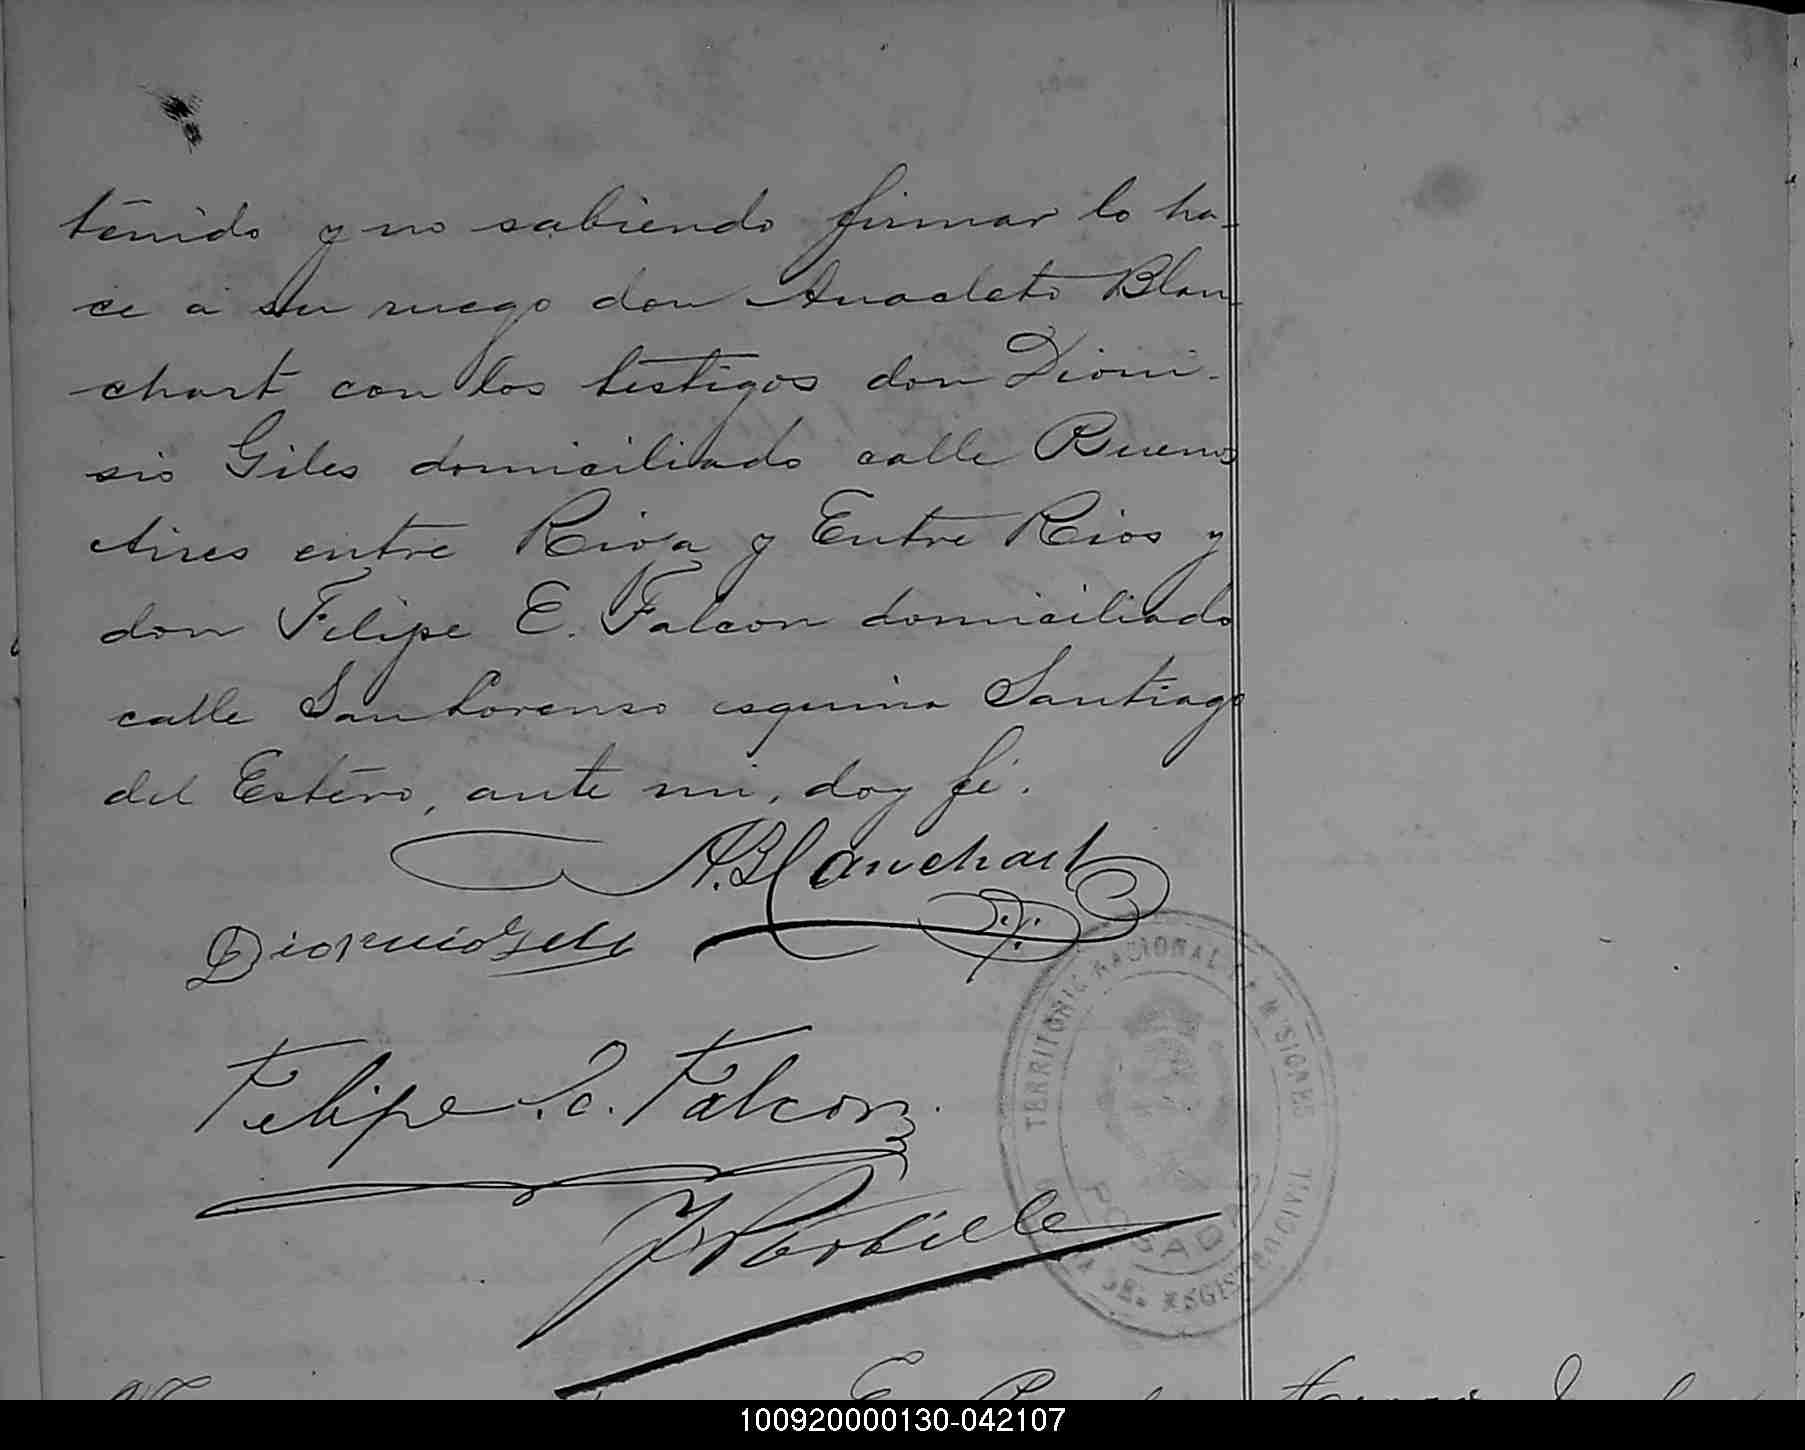 tenido y no sabiendo firmar lo ha-
ce á su ruego don Anacleto Blan-
chart con los testigos don Dioni-
sio Giles domiciliado calle Buenos
Aires entre Rioja y Entre Rios y
don Felipe E. Falcon domiciliado
calle San Lorenso esquina Santiago
del Estero, ante mi, doy fé.
A. Blanchart
Dionicio Gile
Felipe E. Falcon
TERRITORIO NACIONAL DE MISIONES
POSADAS
DEL REGISTRO CIVIL
100920000130-042107